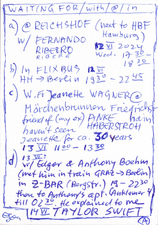 WAITING FOR/with/@/in
a) @ REICHSHOF (next to HBF
Hamburg)
w/ FERNANDO
RIBEIRO
12 VI 2024
Wed.: 17:30
18:30
b) In FLIXBUS 12 VI
HH → Berlin 19:30 - 22:45
c) W. Fr. Jeanette WAGNER @
Märchenbrunnen Friedrichsh.
friend of (my ex) ANKE
HABERSTROH
haven't seen
Jeanette for ca. 30 years
13 VI 11:00 - 13:30
13 VI
d) w/ Edgar & Anthony Boehm
(met him in train GRAZ → Berlin)
in Z-BAR (Bergstr.) 19 - 22:30
then to Anthony's apt.
till 02:00 He explained to me
14 VI TAYLOR SWIFT